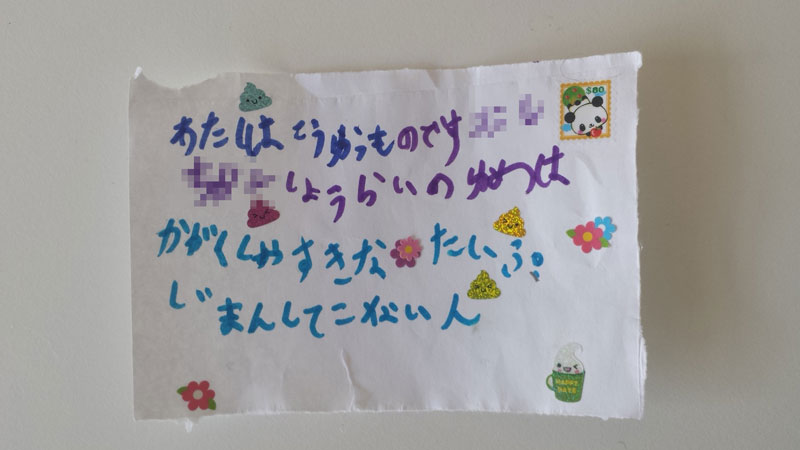 わたしは こうゆうものです
しょうらいの ゆめは
かがくしゃ すきな たいぷ
じまんしてこない人